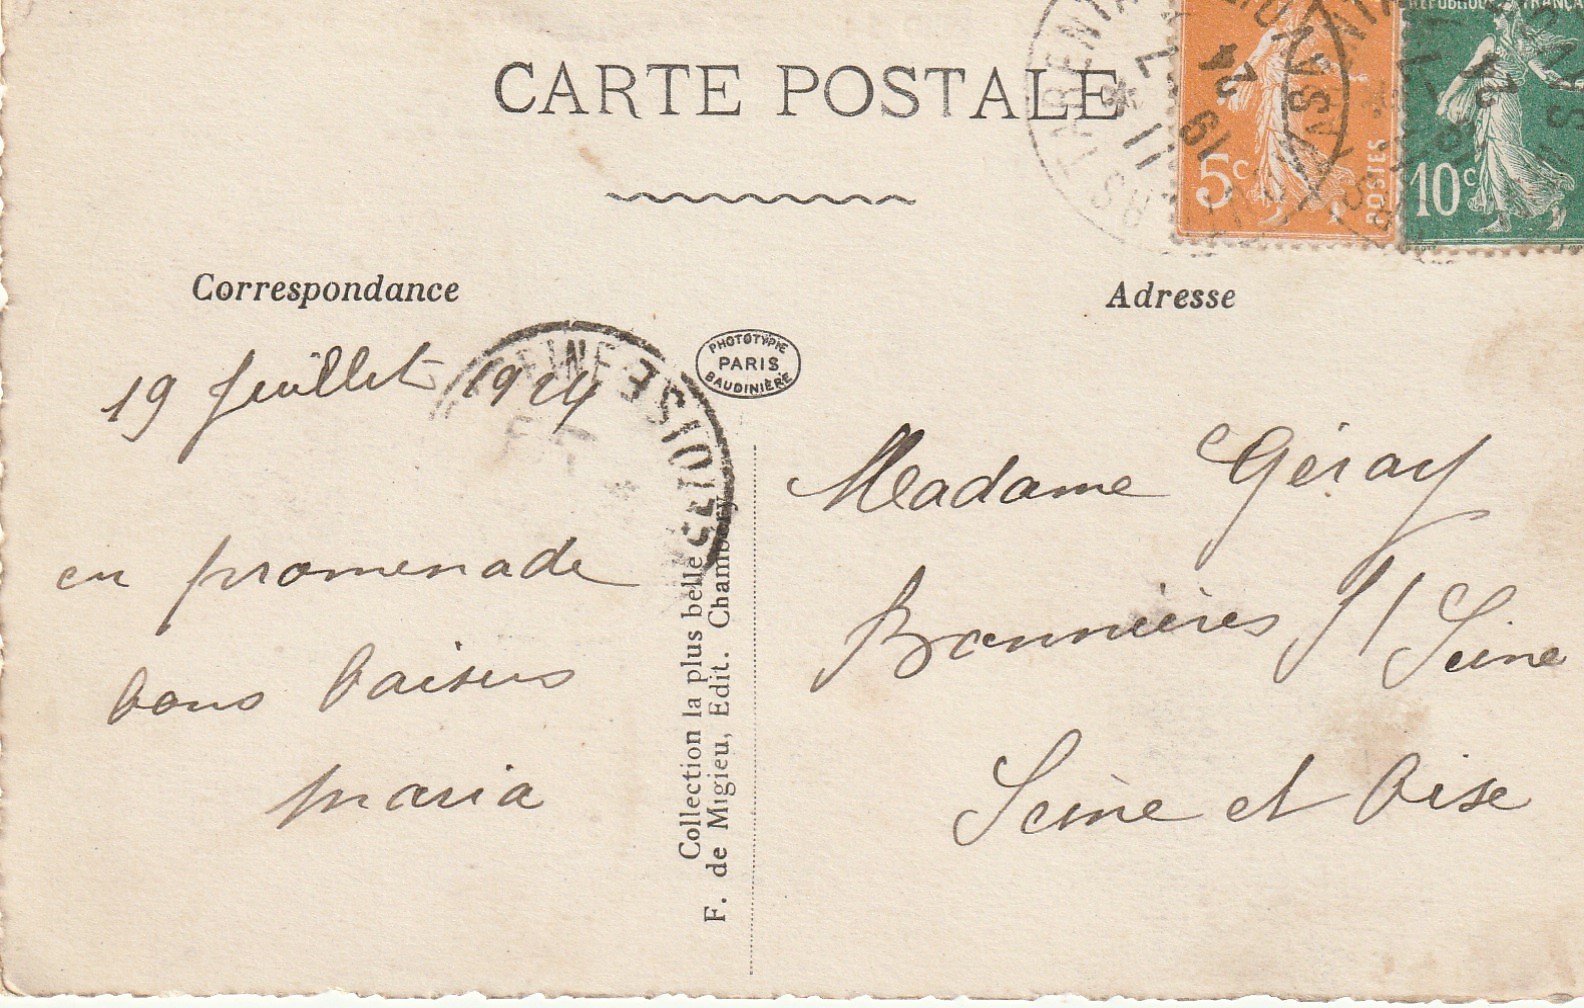 CARTE POSTALE
RÉPUBLIQUE FRANÇAISE
5c
POSTES
10c
19
24
11
Correspondance
Adresse
PHOTOTYPIE
PARIS
BAUDINIÈRE
19 Juillet 1924
en promenade
bons baisers
Maria
SEINE
OISE
Collection la plus belle
F. de Migieu, Edit. Chambéry
Madame Géray
Bonnières s/ Seine
Seine et Oise